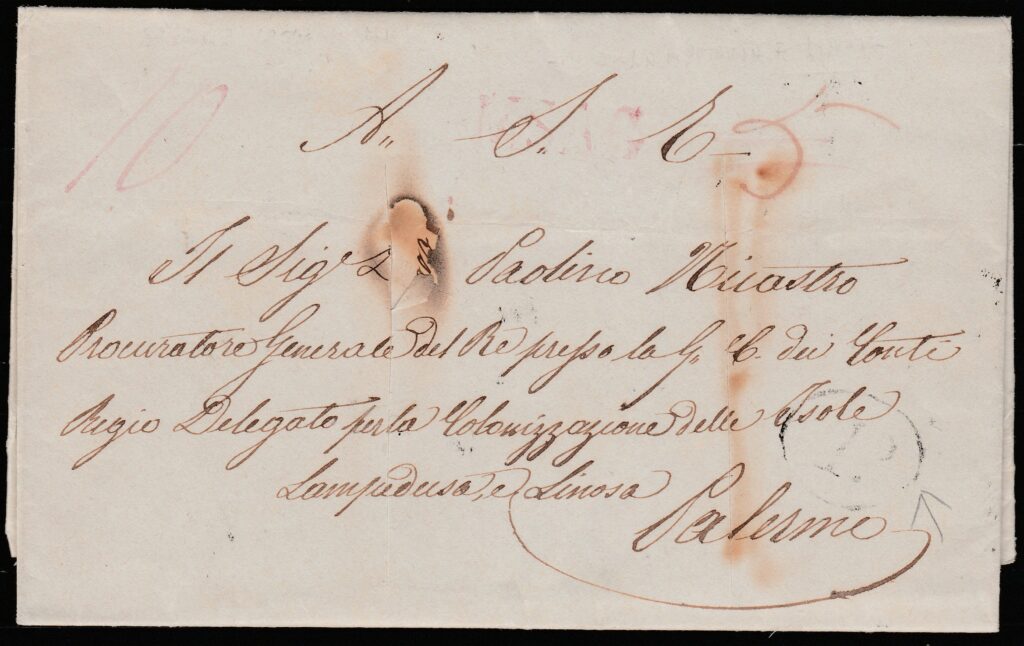 A. S. E.
Il Sig.r D. Paolino Nicastro
Procuratore Generale del Re presso la G. C. dei Conti
Regio Delegato per la Colonizzazione delle Isole
Lampedusa, e Linosa
Palermo
10
5